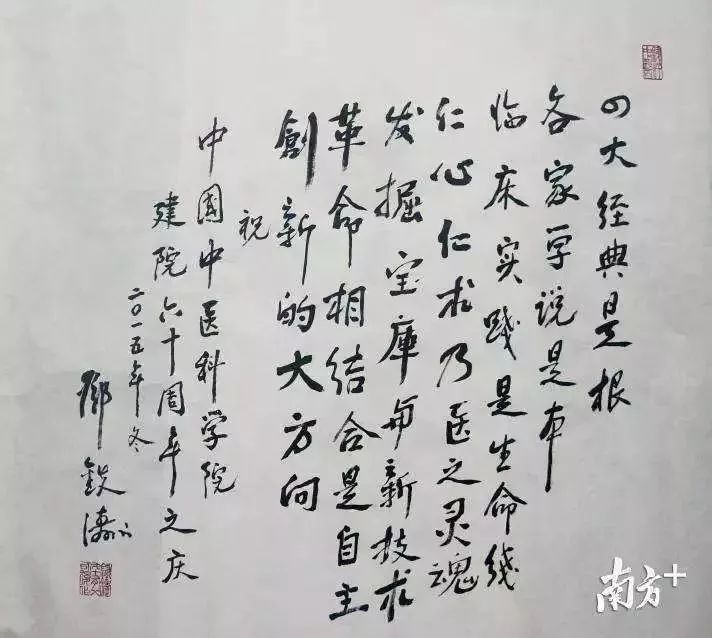 四大经典是根
各家学说是本
临床实践是生命线
仁心仁术乃医之灵魂
发掘宝庫与新技术
革命相结合是自主
創新的大方向
祝
中國中医科学院
建院六十周年之庆
二〇一五年冬
鄧鉄涛
南方+